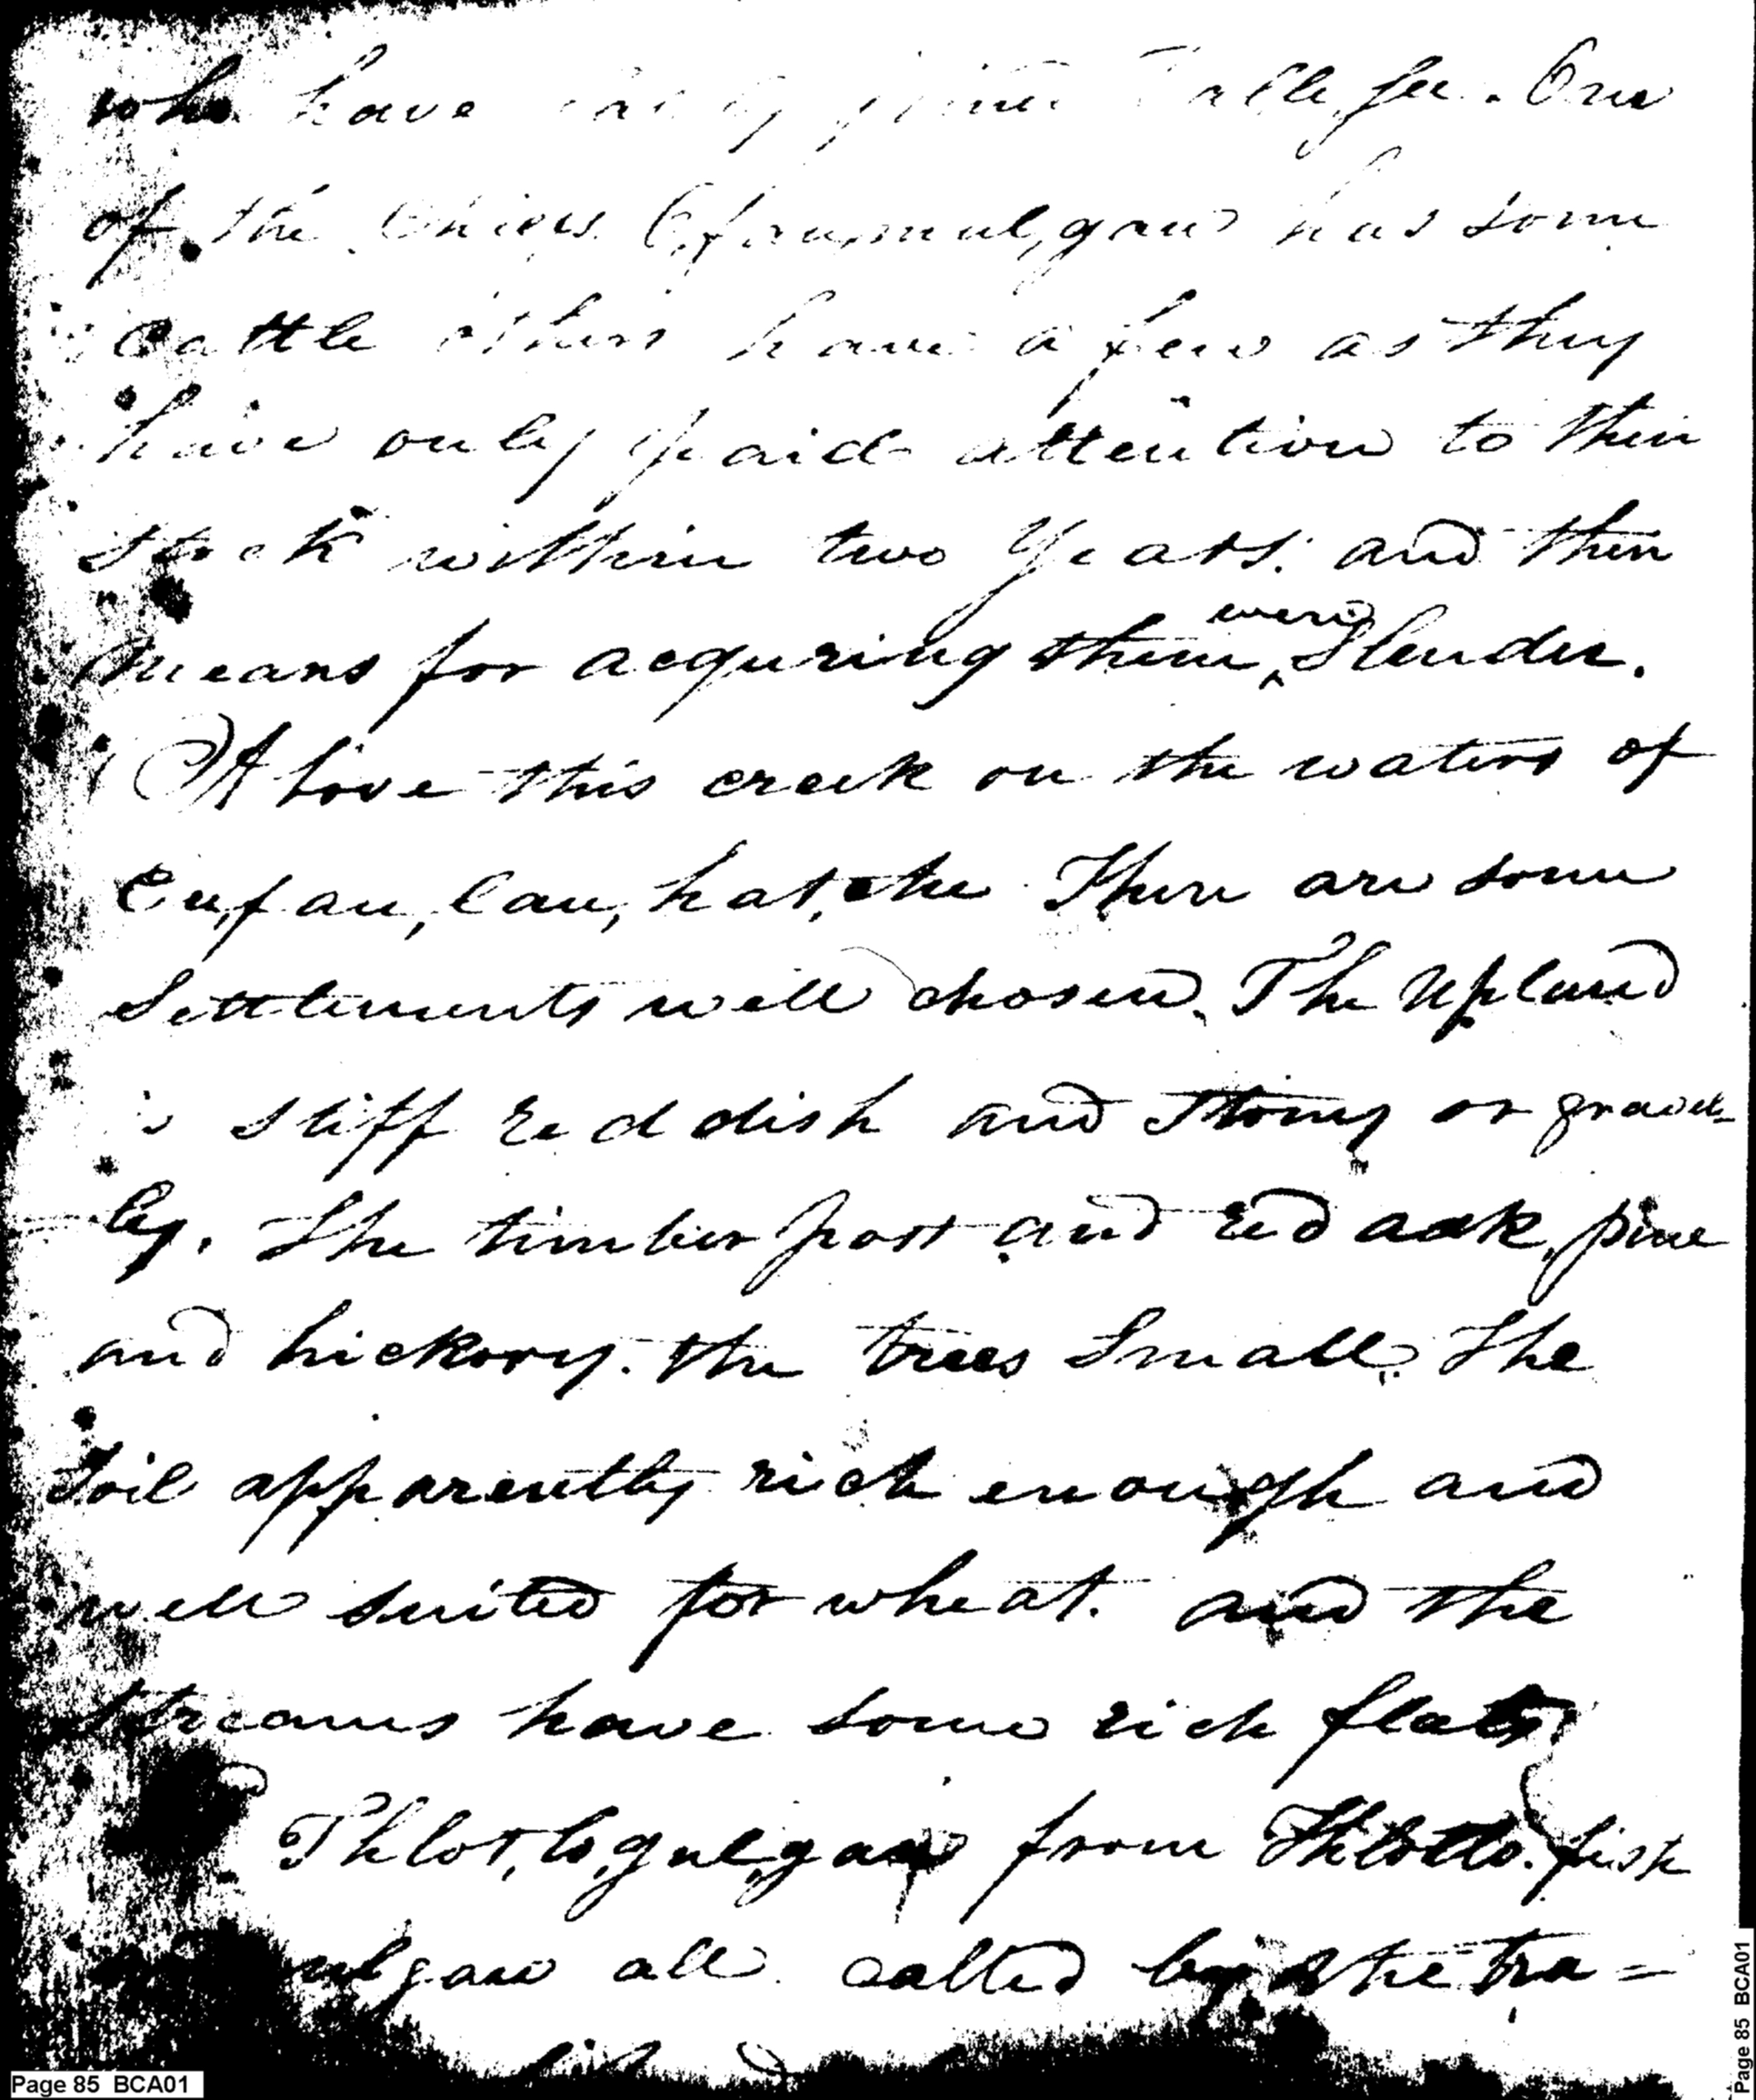 who have
of the Chiefs has some
Cattle others have a few as they
have only paid attention to their
stock within two Years. and their
means for acquring them were Slender.
Above this creek on the waters of
Eu,fau,lau,hat,che There are some
Settlements well chosen. The upland
is stiff reddish and Stony or gravel-
ly. The timber post and red oak, pine
and hickory. the trees Small. The
Soil apparently rich enough and
well suited for wheat. and the
streams have some rich flats
Thlot,lo,gul,gau from Thlotlo. fish
ulgau all. called by the tra=
Page 85 BCA01
Page 85 BCA01